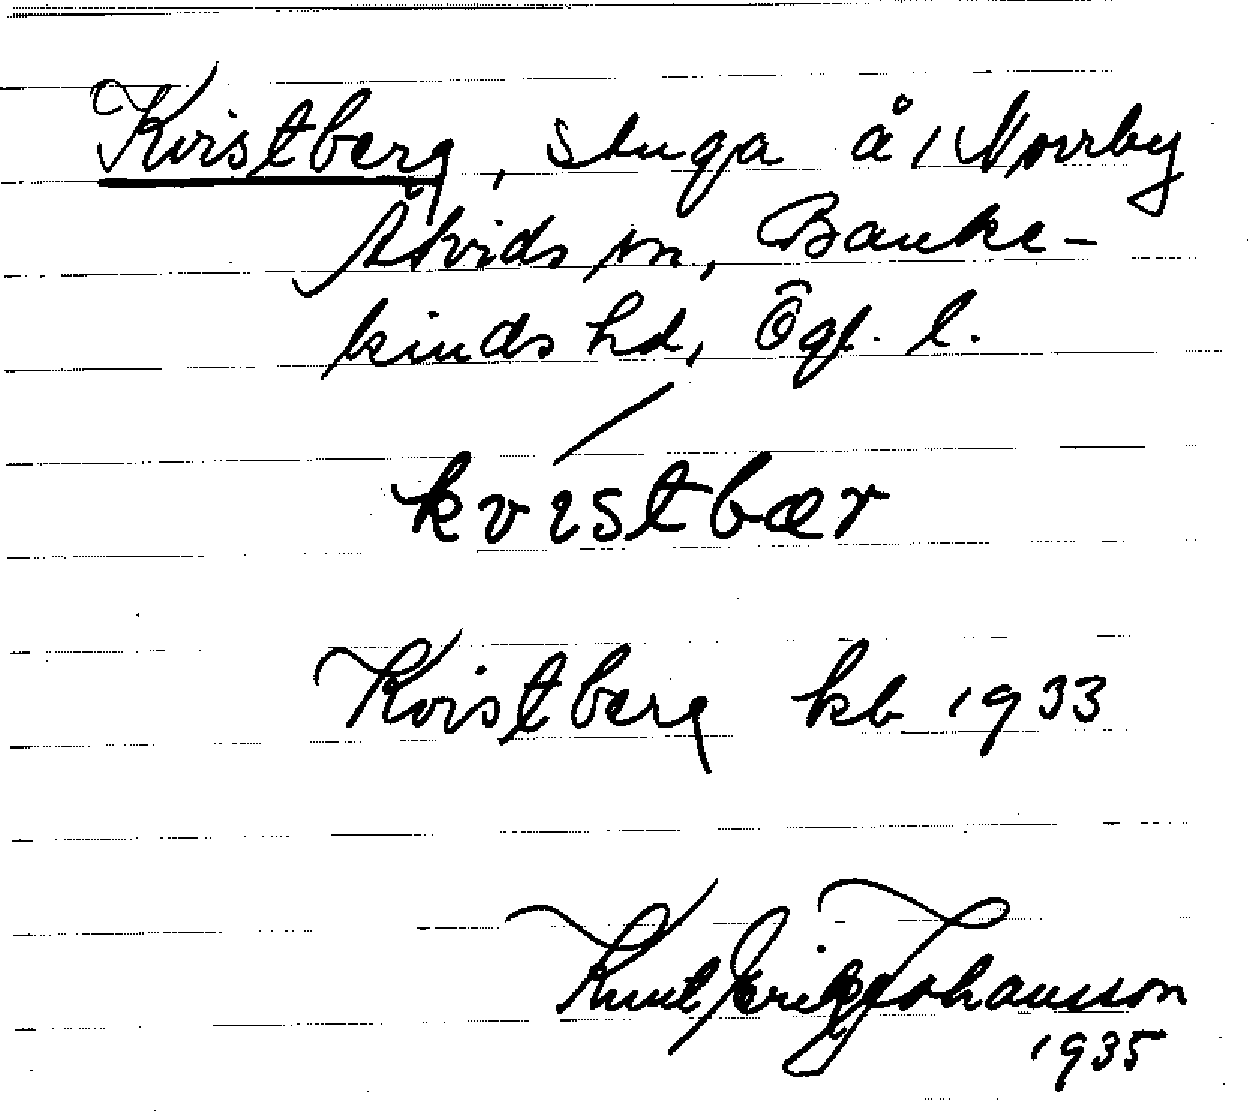 Kvistberg, stuga å 1 Norrby
Åtvids sn, Banke-
kinds hd, Ögl. l.
kvistbær
Kvistberg kb 1933
Knut Erik Johansson
1935